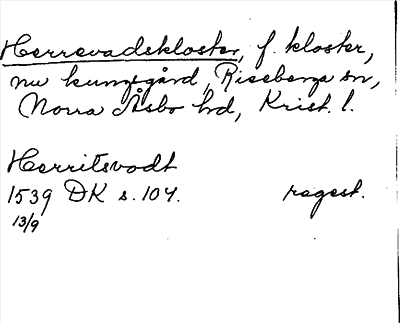 Herrevadskloster, f. kloster,
nu kungsgård, Riseberga sn,
Norra Åsbo hd, Krist. l.
Herritsvodt
1539 DK s. 104. regest.
13/9